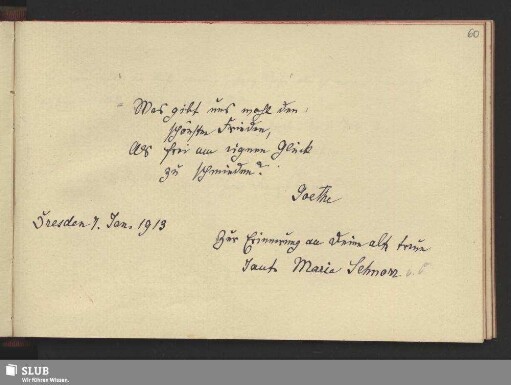 60
Was gibt uns wohl den
schönsten Frieden,
Als frei am eignen Glück
zu schmieden?
Goethe
Dresden 7. Jan. 1913
Zur Erinnerung an Deine alte treue
Tante Maria Schnorr
SLUB
Wir führen Wissen.